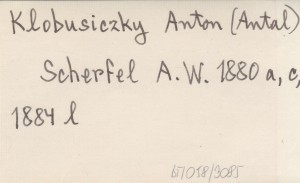 Klobusiczky Anton (Antal)
Scherfel A.W. 1880 a, c,
1884 l